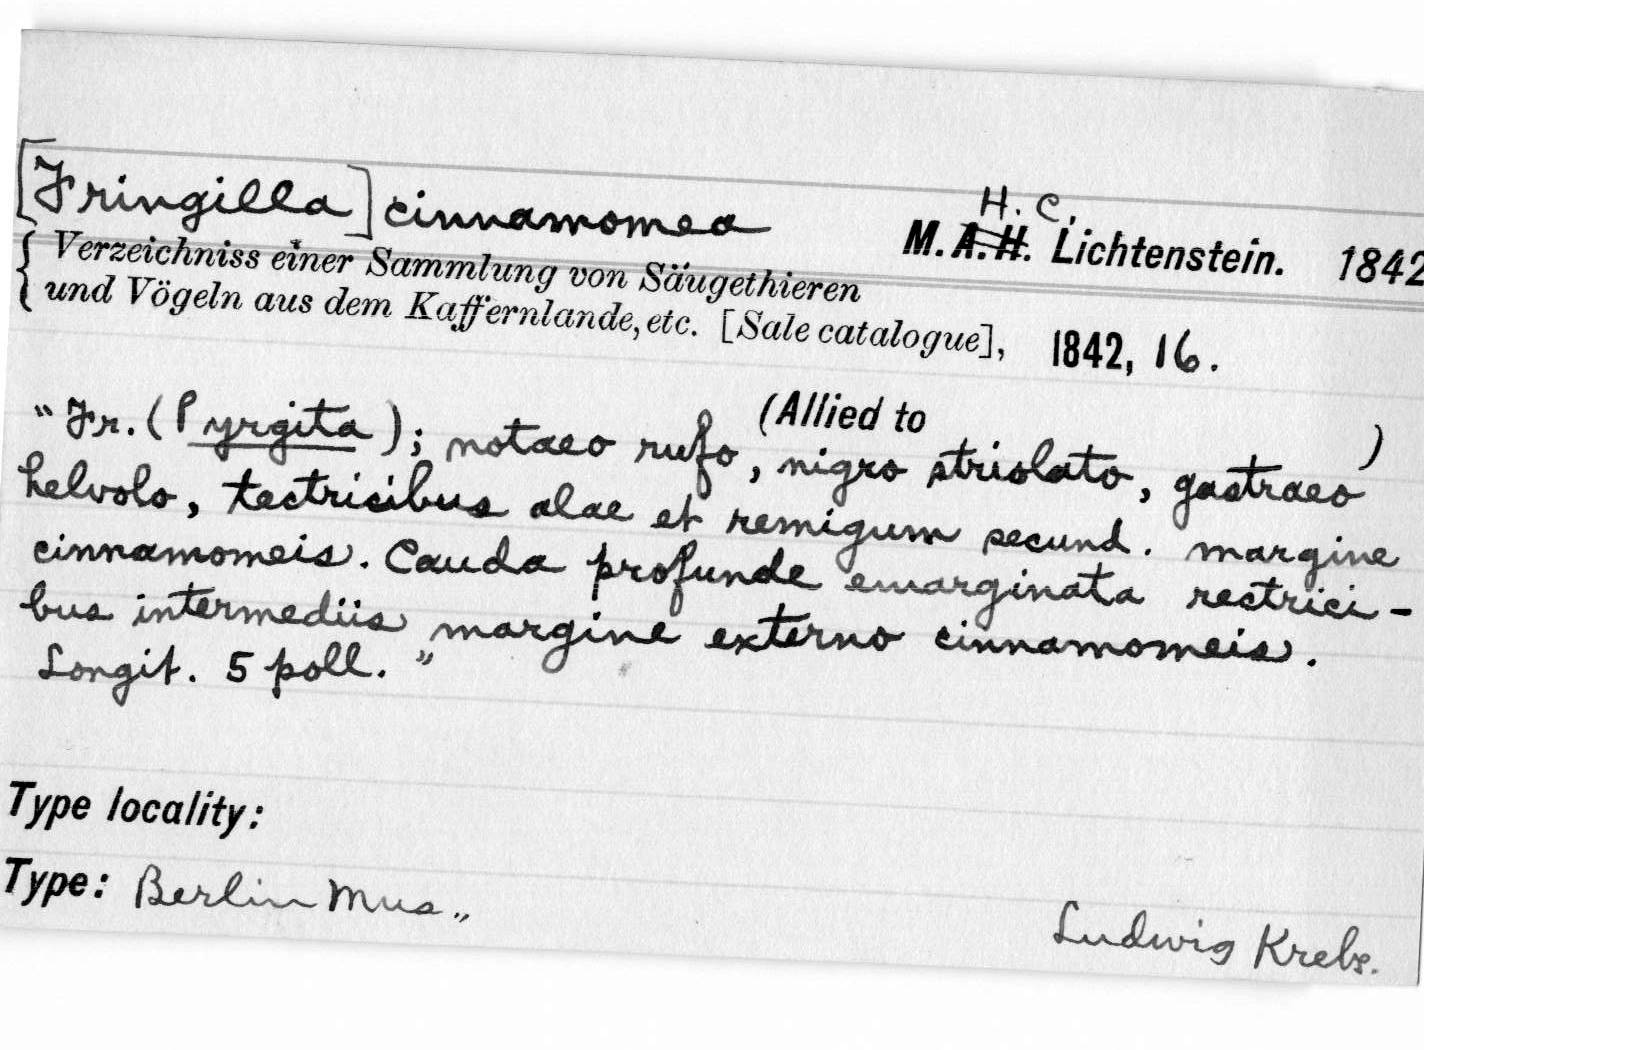 [Fringilla] cinnamomea
H. C.
M. A. H. Lichtenstein. 1842
Verzeichniss einer Sammlung von Säugethieren
und Vögeln aus dem Kaffernlande, etc. [Sale catalogue], 1842, 16.
(Allied to )
"Fr. (Pyrgita); notaeo rufo, nigro striolato, gastraeo
helvolo, tectricibus alae et remigum secund. margine
cinnamomeis. Cauda profunde emarginata rectrici-
bus intermediis margine externo cinnamomeis.
Longit. 5 poll."
Type locality:
Type: Berlin Mus.
Ludwig Krebs.